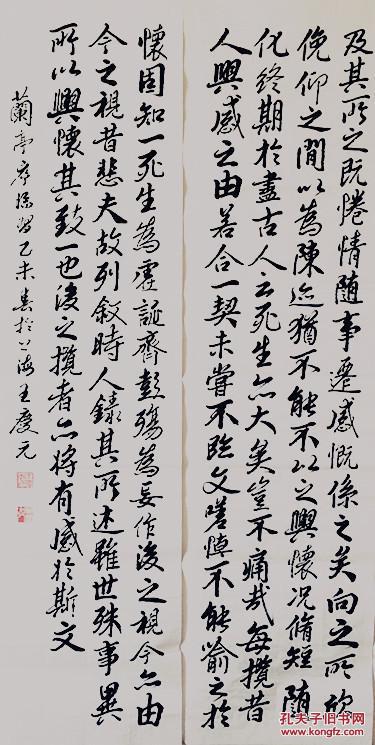 及其所之既惓情随事遷感慨係之矣向之所欣
俛仰之間以為陳迹猶不能不以之興懷况脩短随
化終期於盡古人云死生亦大矣豈不痛哉每攬昔
人興感之由若合一契未嘗不臨文嗟悼不能喻之於
懷固知一死生為虛誕齊彭殤為妄作後之視今亦由
今之視昔悲夫故列敘時人錄其所述雖世殊事異
所以興懷其致一也後之攬者亦將有感於斯文
蘭亭序臨習乙未春於上海王慶元
孔夫子旧书网
www.kongfz.com